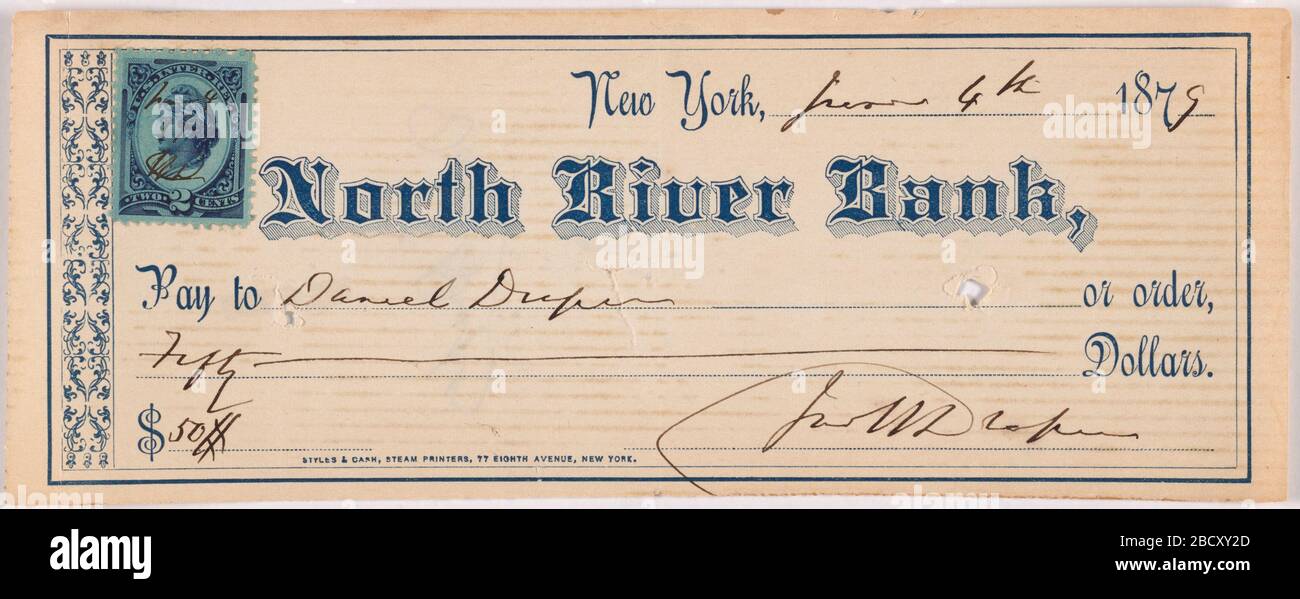 U.S. INTER. REV.
TWO 2 CENTS
New York, June 4th 1879
North River Bank,
Pay to Daniel Draper or order,
Fifty Dollars.
$50
Jno W Draper
STYLES & CASH, STEAM PRINTERS, 77 EIGHTH AVENUE, NEW YORK.
alamy
Image ID: 2BCXY2D
www.alamy.com